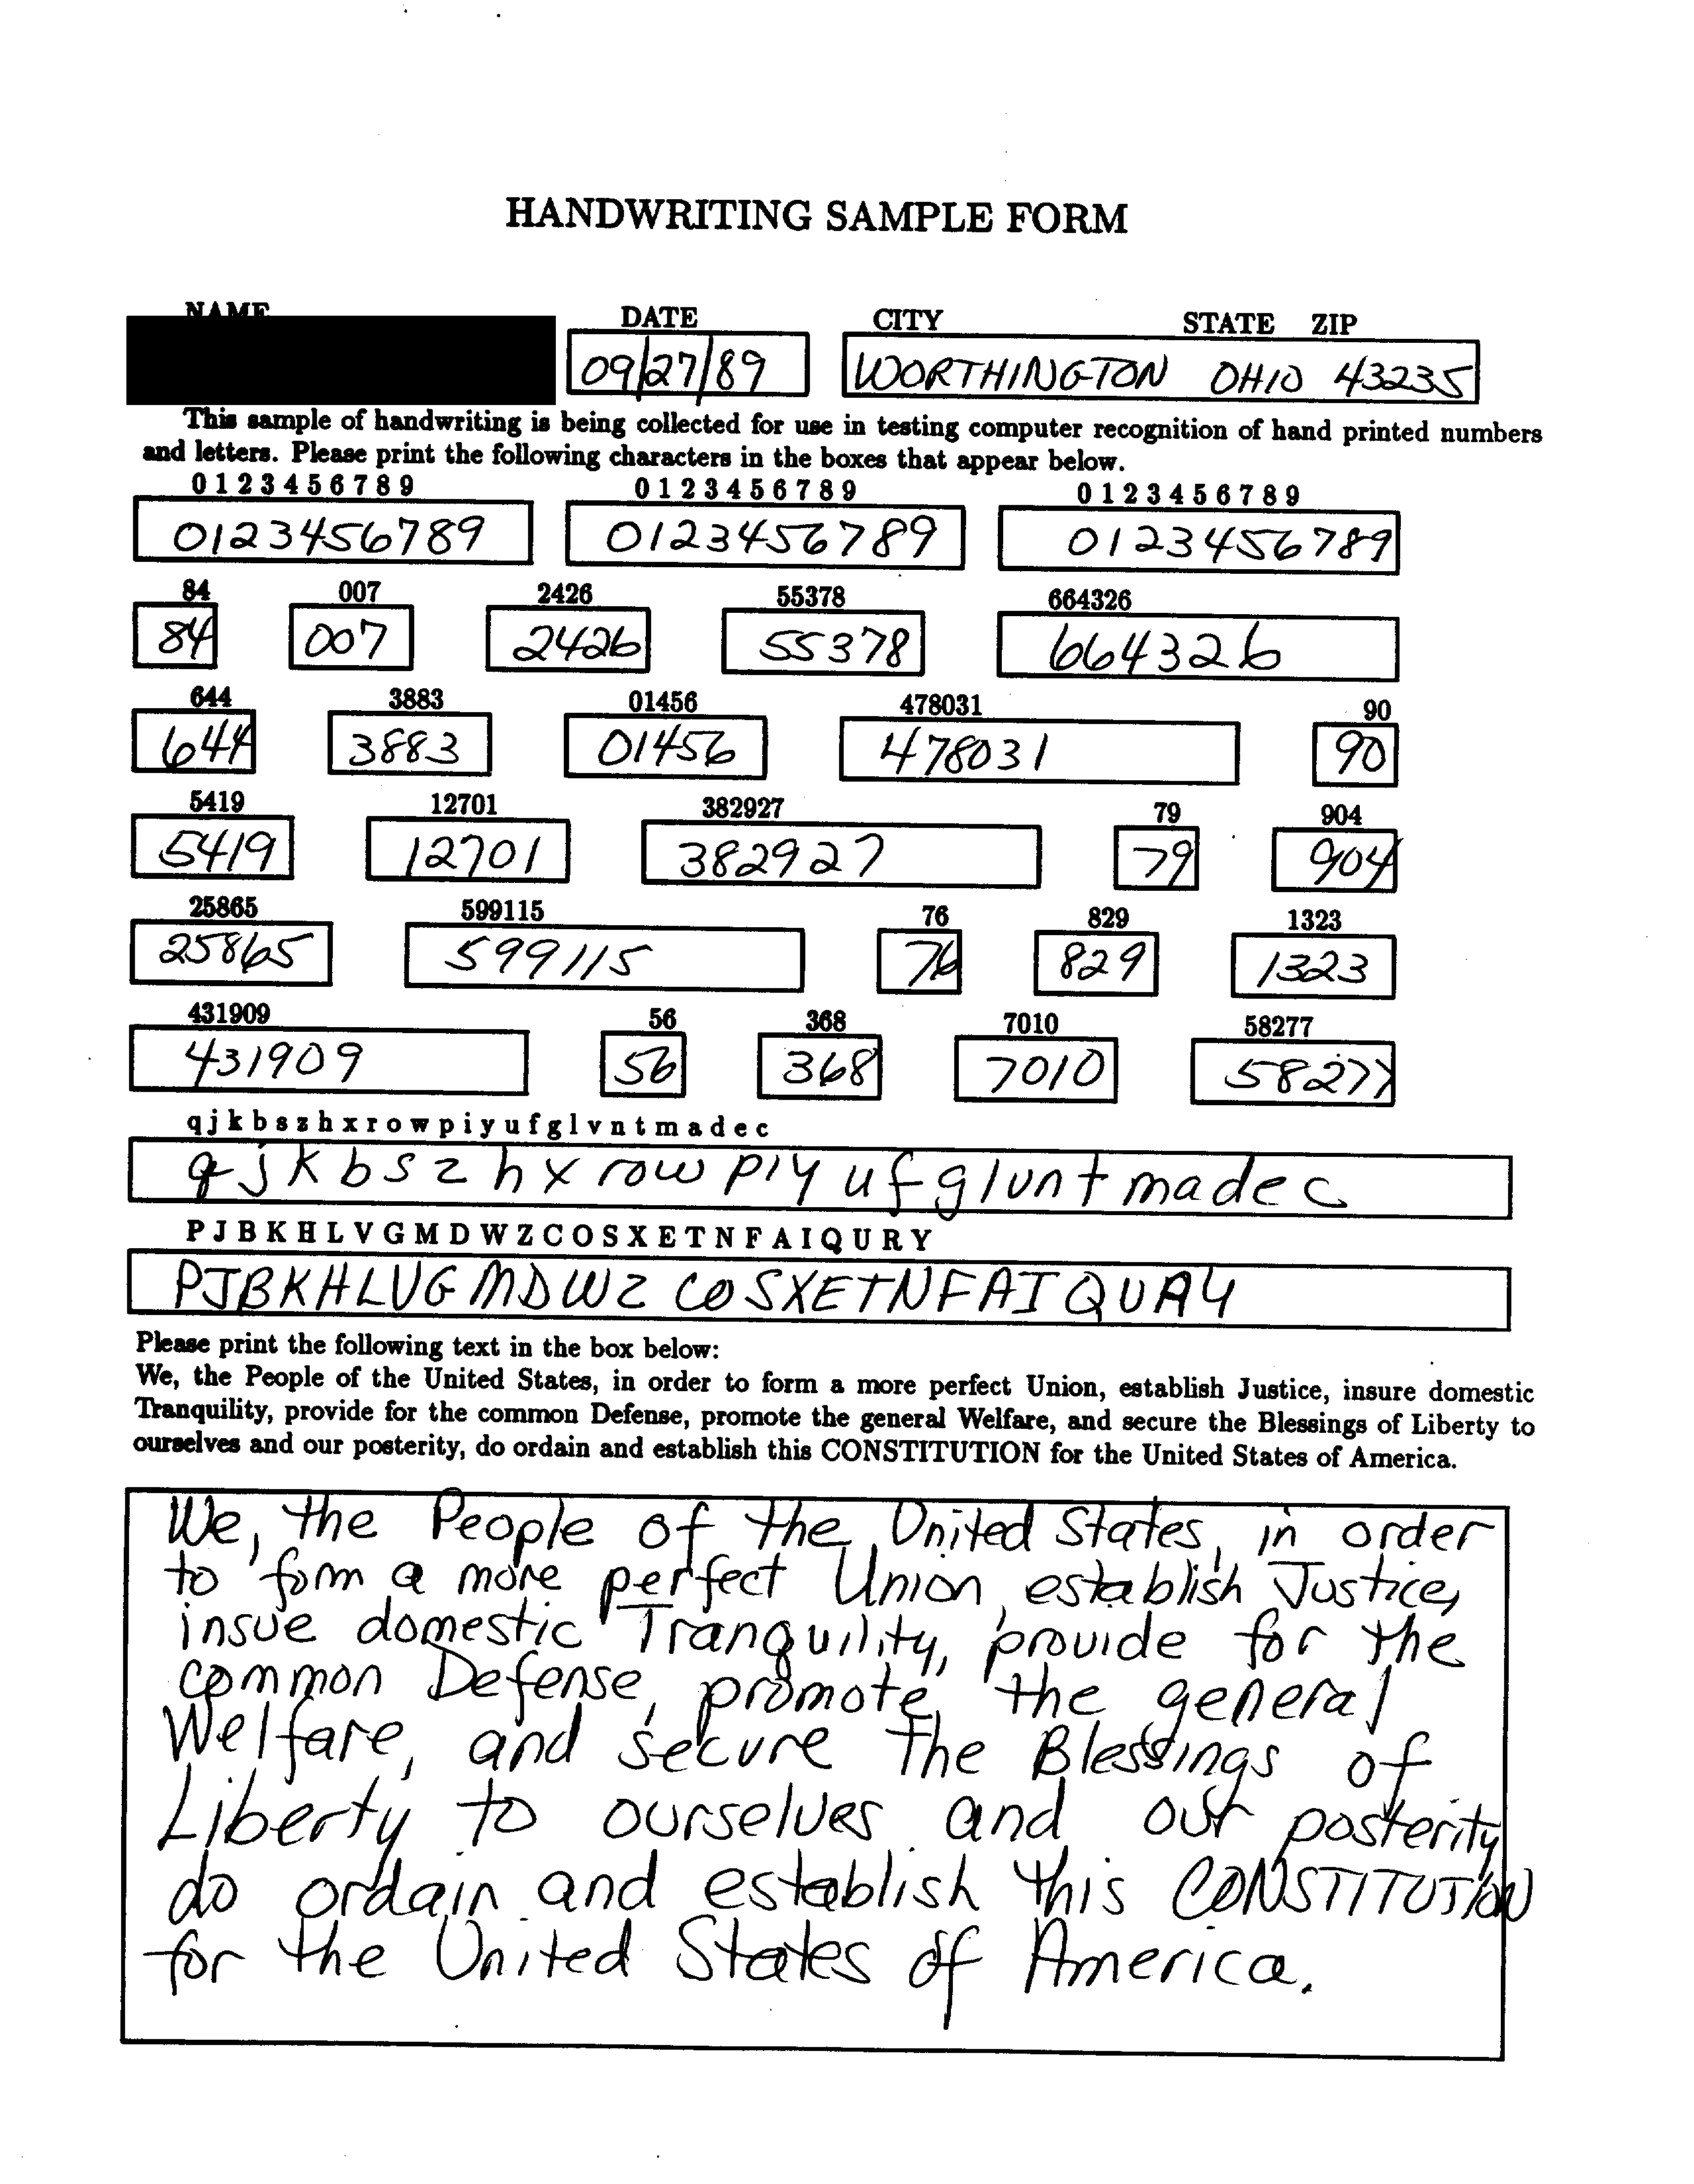 HANDWRITING SAMPLE FORM
NAME DATE CITY STATE ZIP
09/27/89 WORTHINGTON OHIO 43235
This sample of handwriting is being collected for use in testing computer recognition of hand printed numbers
and letters. Please print the following characters in the boxes that appear below.
0 1 2 3 4 5 6 7 8 9 0 1 2 3 4 5 6 7 8 9 0 1 2 3 4 5 6 7 8 9
0123456789 0123456789 0123456789
84 007 2426 55378 664326
84 007 2426 55378 664326
644 3883 01456 478031 90
644 3883 01456 478031 90
5419 12701 382927 79 904
5419 12701 382927 79 904
25865 599115 76 829 1323
25865 599115 76 829 1323
431909 56 368 7010 58277
431909 56 368 7010 58277
q j k b s z h x r o w p i y u f g l v n t m a d e c
q j k b s z h x r o w p i y u f g l v n t m a d e c
P J B K H L V G M D W Z C O S X E T N F A I Q U R Y
P J B K H L V G M D W Z C O S X E T N F A I Q U R Y
Please print the following text in the box below:
We, the People of the United States, in order to form a more perfect Union, establish Justice, insure domestic
Tranquility, provide for the common Defense, promote the general Welfare, and secure the Blessings of Liberty to
ourselves and our posterity, do ordain and establish this CONSTITUTION for the United States of America.
We, the People of the United States, in order
to form a more perfect Union, establish Justice,
insue domestic Tranquility, provide for the
common Defense, promote the general
Welfare, and secure the Blessings of
Liberty to ourselves and our posterity
do ordain and establish this CONSTITUTION
for the United States of America.